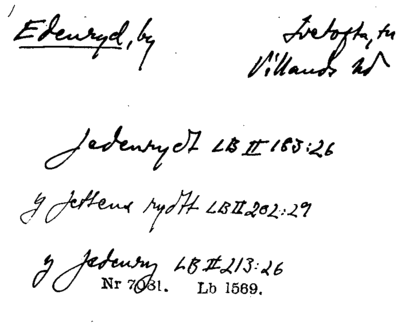 Edenryd, by Ivetofta, sn
Villands hd
Jedenrydt LB II 183:26
y Jettene rydtt LB II 202:29
y Jedenry LB II 213:26
Nr 7031. Lb 1569.